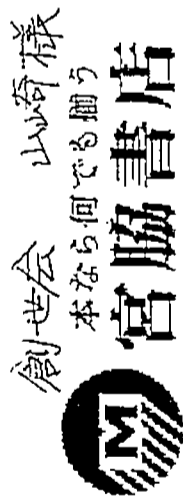 創世会 山崎様
本なら何でも揃う
宮脇書店
M